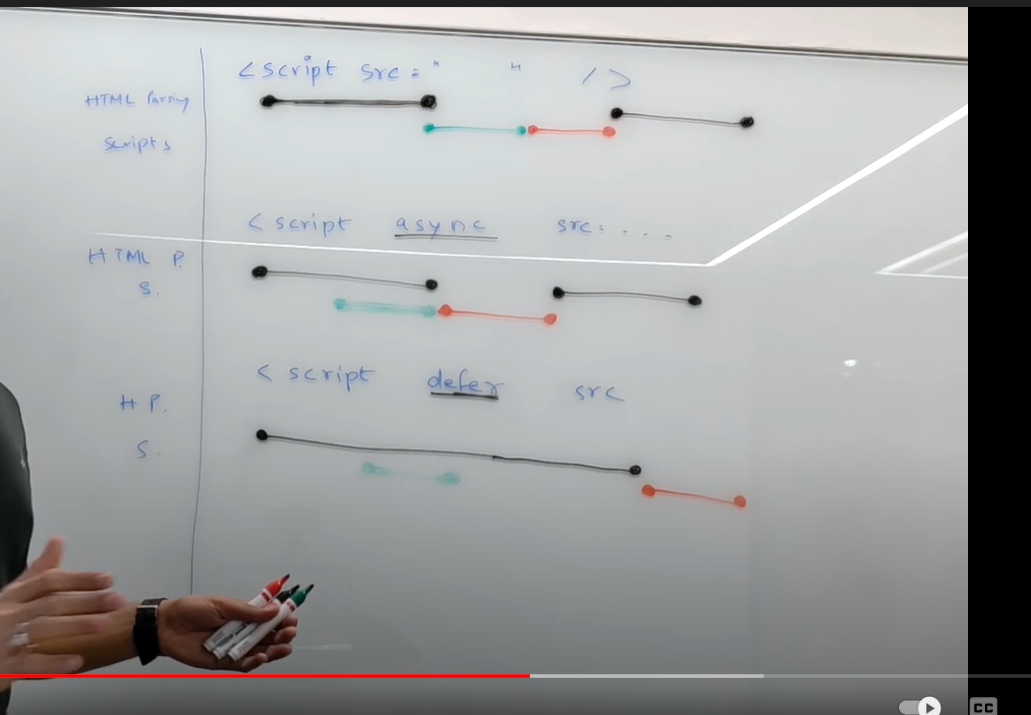 <script src="   " />
HTML Parsing
Scripts
<script async src=....
HTML P.
S.
<script defer src
H P.
S.
CC